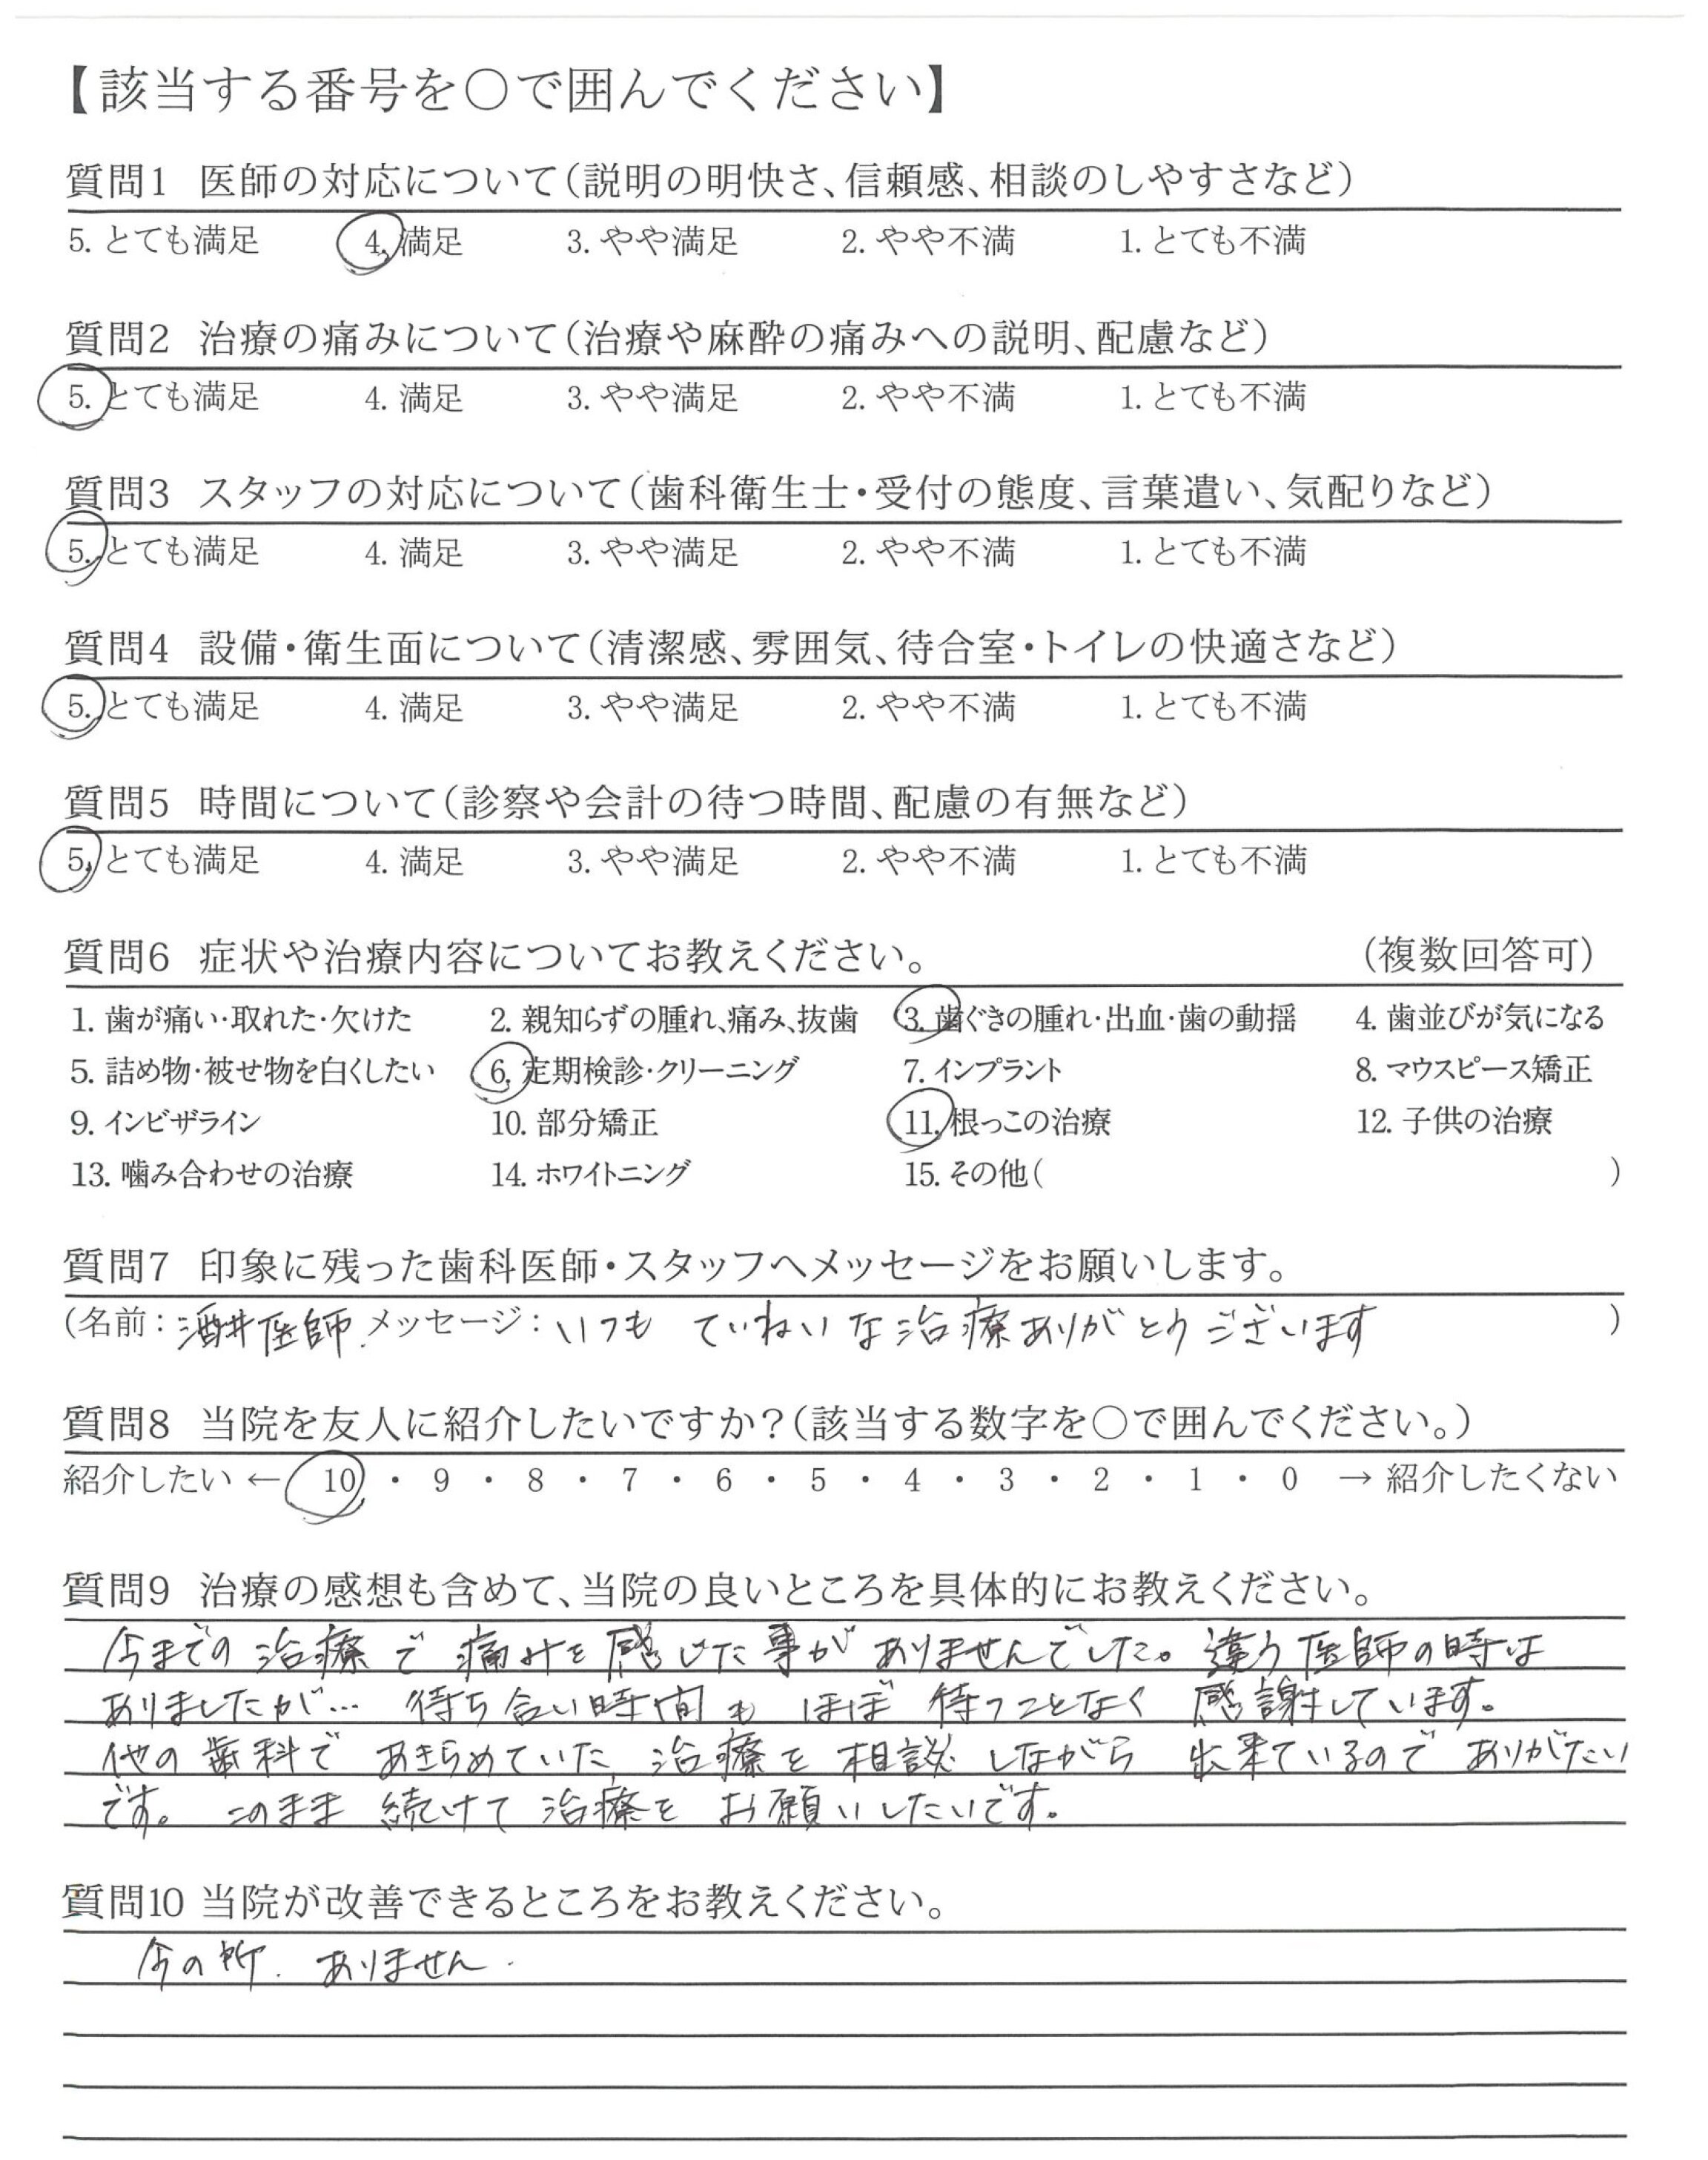 【該当する番号を○で囲んでください】
質問1 医師の対応について(説明の明快さ、信頼感、相談のしやすさなど)
5. とても満足 4. 満足 3. やや満足 2. やや不満 1. とても不満
質問2 治療の痛みについて(治療や麻酔の痛みへの説明、配慮など)
5. とても満足 4. 満足 3. やや満足 2. やや不満 1. とても不満
質問3 スタッフの対応について(歯科衛生士・受付の態度、言葉遣い、気配りなど)
5. とても満足 4. 満足 3. やや満足 2. やや不満 1. とても不満
質問4 設備・衛生面について(清潔感、雰囲気、待合室・トイレの快適さなど)
5. とても満足 4. 満足 3. やや満足 2. やや不満 1. とても不満
質問5 時間について(診察や会計の待つ時間、配慮の有無など)
5. とても満足 4. 満足 3. やや満足 2. やや不満 1. とても不満
質問6 症状や治療内容についてお教えください。 (複数回答可)
1. 歯が痛い・取れた・欠けた 2. 親知らずの腫れ、痛み、抜歯 3. 歯ぐきの腫れ・出血・歯の動揺 4. 歯並びが気になる
5. 詰め物・被せ物を白くしたい 6. 定期検診・クリーニング 7. インプラント 8. マウスピース矯正
9. インビザライン 10. 部分矯正 11. 根っこの治療 12. 子供の治療
13. 噛み合わせの治療 14. ホワイトニング 15. その他( )
質問7 印象に残った歯科医師・スタッフへメッセージをお願いします。
(名前:酒井医師. メッセージ:いつも ていねいな治療ありがとうございます )
質問8 当院を友人に紹介したいですか?(該当する数字を○で囲んでください。)
紹介したい ← 10 ・ 9 ・ 8 ・ 7 ・ 6 ・ 5 ・ 4 ・ 3 ・ 2 ・ 1 ・ 0 → 紹介したくない
質問9 治療の感想も含めて、当院の良いところを具体的にお教えください。
今までの治療で痛みを感じた事がありませんでした。違う医師の時は
ありましたが… 待ち合い時間も ほぼ 待つことなく 感謝しています。
他の歯科で あきらめていた 治療を 相談しながら 出来ているので ありがたい
です。 このまま 続けて 治療を お願いしたいです。
質問10 当院が改善できるところをお教えください。
今の所. ありません.